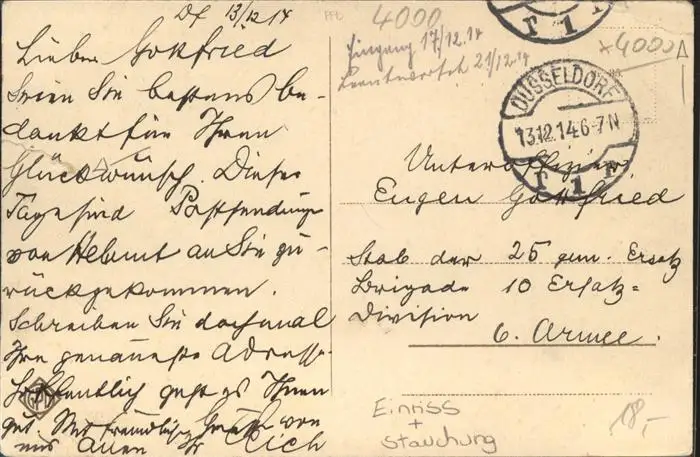 Df 13/12 14
Lieber Gottfried
Seien Sie bestens be-
dankt für Ihren
Glückwunsch. Diese
Tage sind Postsendungen
von Helmut an Sie zu-
rückgekommen.
Schreiben Sie doch mal
Ihre genaueste Adresse.
Hoffentlich geht es Ihnen
gut. Mit freundlichen Grüßen von
uns allen Ihr
4000
Eingang 17/12.14
Beantwortet 21/12.14
x 4000
DÜSSELDORF
13.12.14.6-7N
1
Unteroffizier
Eugen Gottfried
Stab der 25 gem. Ersatz
Brigade 10 Ersatz=
Division
6. Armee.
Einriss
+
Stauchung
18,-